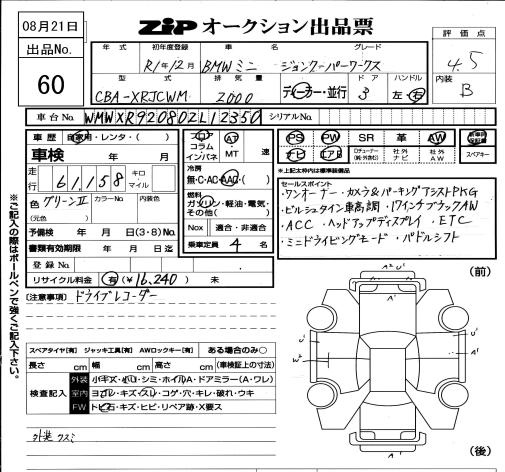 08月21日
出品No.
60
ZIP オークション出品票
評価点
4.5
内装
B
年式 初年度登録 車名 グレード
R1年/12月 BMWミニ ジョンクーパーワークス
型式 排気量 ドア ハンドル
CBA-XRJCWM 2000 ディーラー・並行 3 左・右
車台No. WMWXR920802L12350 シリアルNo.
車歴 自家用・レンタ・( )
車検 年 月
走行 61,158 キロ マイル
色 グリーンII カラーNo. 内装色
(元色)
予備検 年 月(3・8)No.
書類有効期限 年 月 日迄
登録No.
リサイクル料金 有(¥16,240) 未
フロア コラム インパネ AT ・MT 速
冷房
無・C・AC・AAC・( )
燃料
ガソリン・軽油・電気・その他( )
Nox 適合・非適合
乗車定員 4 名
PS PW SR 革 AW 新車時保証書
ナビ エアB Dチューナー(純・外含む) 社外ナビ 社外AW スペアキー
※上記太枠内は標準装備品
セールスポイント
・ワンオーナー・カメラ&パーキングアシストPKG
・ビルシュタイン車高調・17インチブラックAW
・ACC・ヘッドアップディスプレイ・ETC
・ミニドライビングモード・パドルシフト
[注意事項] ドライブレコーダー
※ご記入の際はボールペンで強くご記入下さい。
スペアタイヤ[有] ジャッキ工具[有] AWロックキー[有] ある場合のみ○
長さ cm 幅 cm 高さ cm (車検証上の寸法)
検査記入
外装 小キズ・小凹・シミ・ホイルA・ドアミラー(A・ワレ)
室内 ヨゴレ・キズ・スレ・コゲ・穴・キレ・破れ・ウキ
FW トビ石・キズ・ヒビ・リペア跡・X要ス
外装クスミ
(前)
A2 U'
A'
A'
U'
U'
U'
W2
A'
A'
(後)